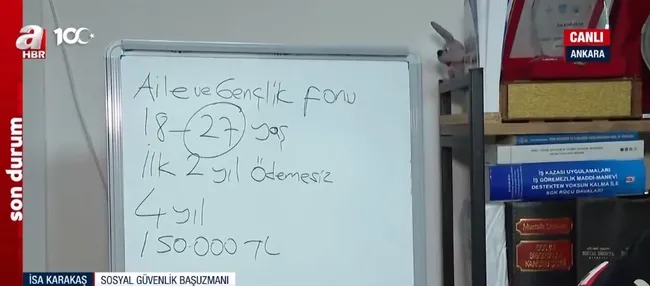 a
HBR
100
CANLI
ANKARA
son durum
Aile ve Gençlik fonu
18-27 yaş
İlk 2 yıl ödemesiz
4 yıl
150.000 TL
İŞ KAZASI UYGULAMALARI
İŞ GÖREMEZLİK MADDİ-MANEVİ
DESTEKTEN YOKSUN KALMA İLE
SGK RÜCU DAVALARI
İSA KARAKAŞ
SOSYAL GÜVENLİK BAŞUZMANI